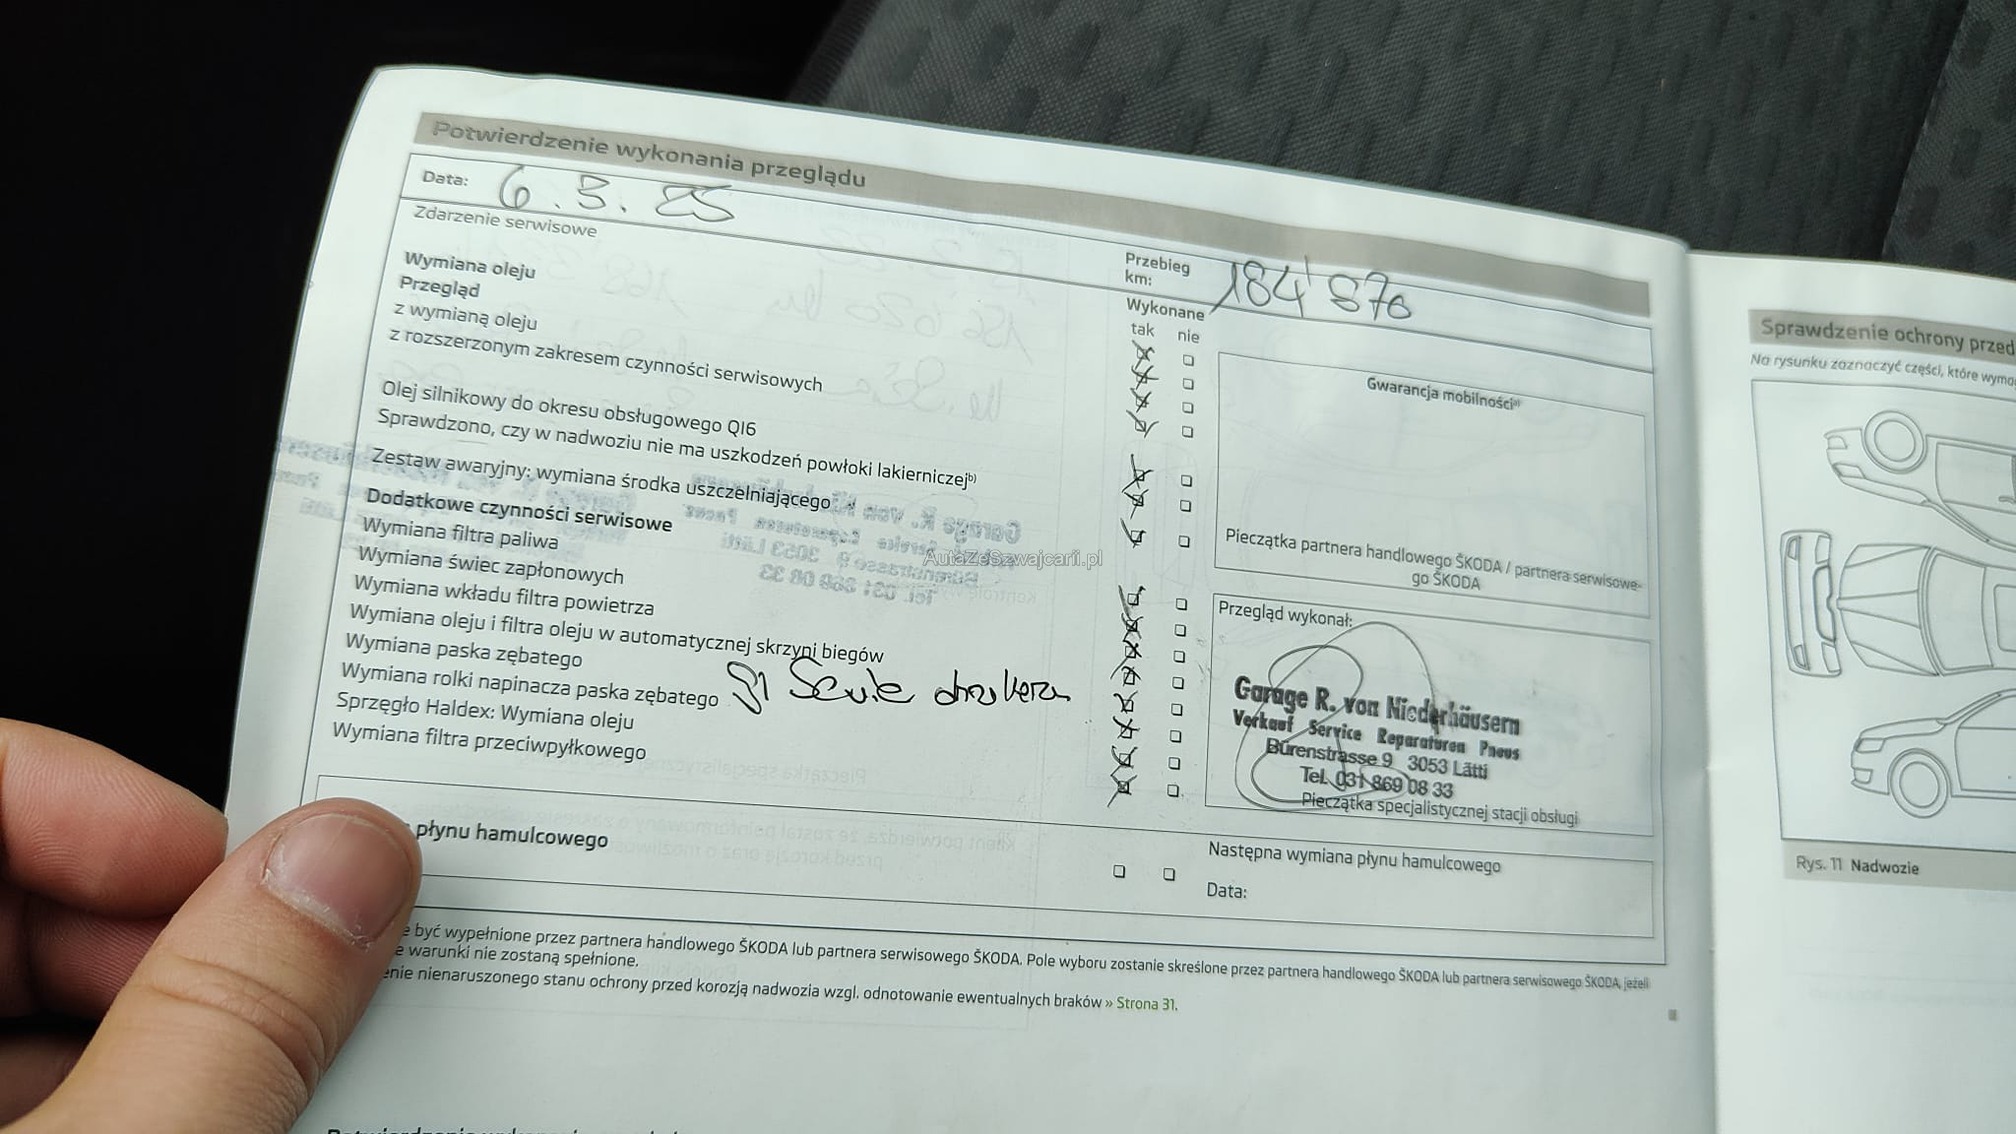 Potwierdzenie wykonania przeglądu
Data: 6.3.25
Przebieg km: 184'870
Zdarzenie serwisowe
Wykonane
tak nie
Wymiana oleju
Przegląd
z wymianą oleju
z rozszerzonym zakresem czynności serwisowych
Olej silnikowy do okresu obsługowego QI6
Sprawdzono, czy w nadwoziu nie ma uszkodzeń powłoki lakierniczej b)
Zestaw awaryjny: wymiana środka uszczelniającego
Dodatkowe czynności serwisowe
Wymiana filtra paliwa
Wymiana świec zapłonowych
Wymiana wkładu filtra powietrza
Wymiana oleju i filtra oleju w automatycznej skrzyni biegów
Wymiana paska zębatego
Wymiana rolki napinacza paska zębatego
Sprzęgło Haldex: Wymiana oleju
Wymiana filtra przeciwpyłkowego
Gwarancja mobilności a)
Pieczątka partnera handlowego ŠKODA / partnera serwisowe-
go ŠKODA
Przegląd wykonał:
Garage R. von Niederhäusern
Verkauf Service Reparaturen Pneus
Bürenstrasse 9 3053 Lätti
Tel. 031 869 08 33
Pieczątka specjalistycznej stacji obsługi
płynu hamulcowego
Następna wymiana płynu hamulcowego
Data:
być wypełnione przez partnera handlowego ŠKODA lub partnera serwisowego ŠKODA. Pole wyboru zostanie skreślone przez partnera handlowego ŠKODA lub partnera serwisowego ŠKODA, jeżeli
warunki nie zostaną spełnione.
nienaruszonego stanu ochrony przed korozją nadwozia wzgl. odnotowanie ewentualnych braków » Strona 31.
AutaZeSzwajcarii.pl
Sprawdzenie ochrony przed
Na rysunku zaznaczyć części, które
Rys. 11 Nadwozie